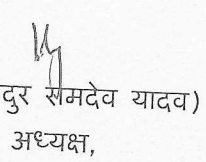 दुर रामदेव यादव)
अध्यक्ष,